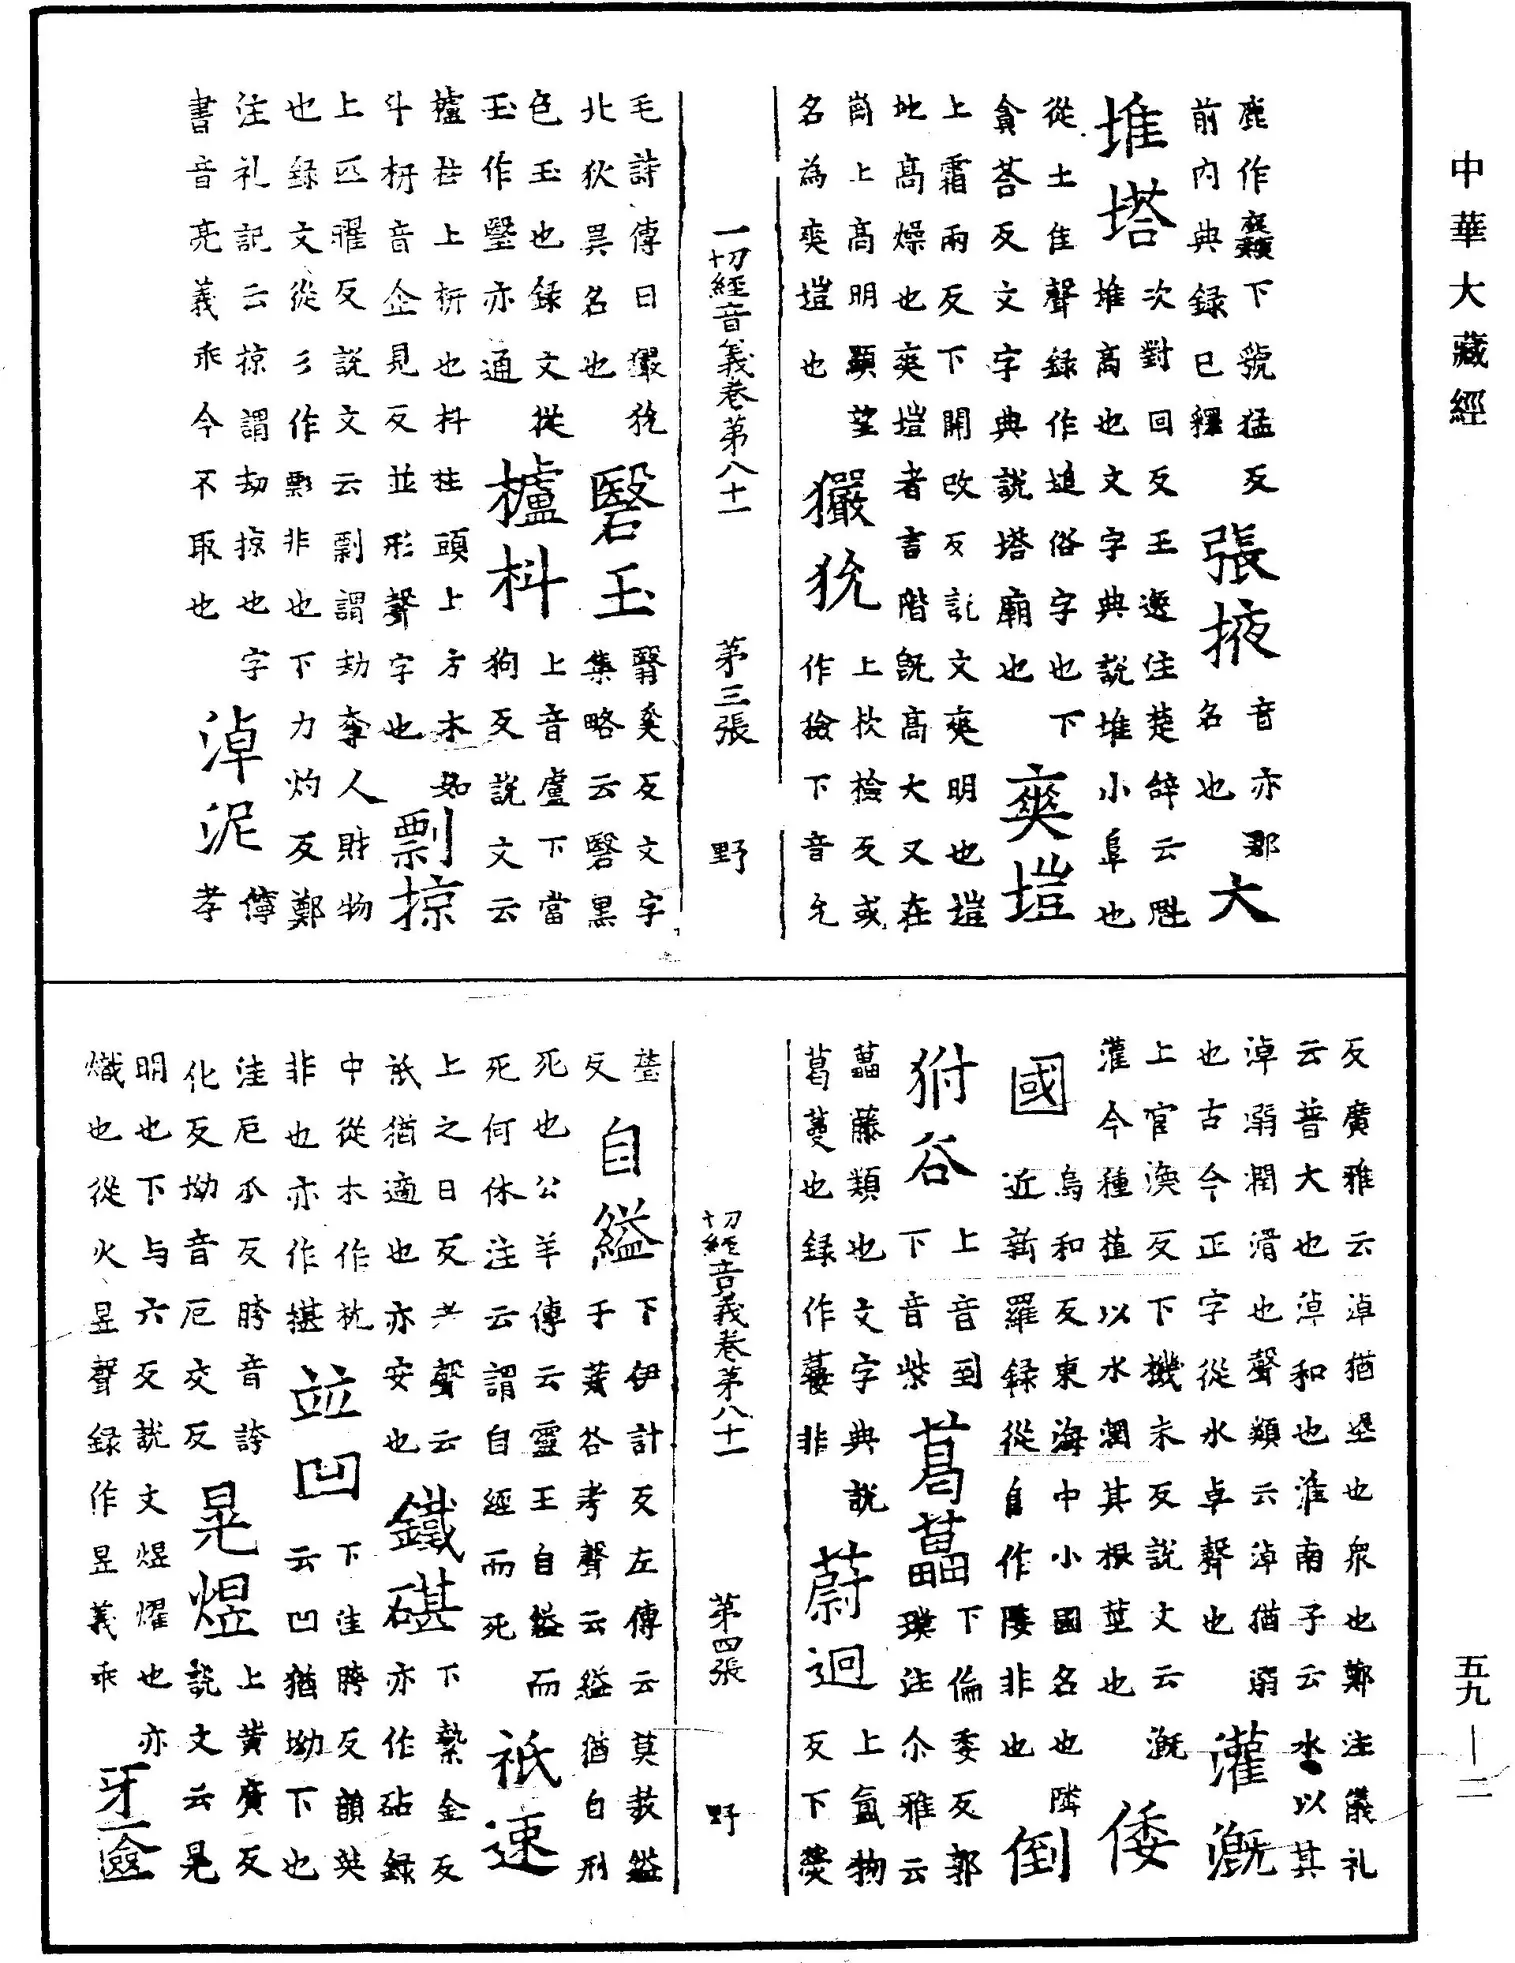 中華大藏經
五九—二
鹿作麤下號猛反
前內典録已釋
張掖
音亦郡
名也
大
堆塔
次對回反王逸注楚辞云魁
堆高也文字典說堆小阜也
從土隹聲録作塠俗字也下
貪荅反文字典說塔廟也
爽塏
上霜兩反下開改反說文爽明也塏
地高燥也爽塏者言階既高大又在
崗上高明顯望
名為爽塏也
玁狁
上杴檢反或
作獫下音允
一切經音義卷第八十一 第三張 野
毛詩傳曰玁狁
北狄異名也
毉玉
毉奚反文字
集略云毉黑
色玉也録文從
玉作瑿亦通
櫨枓
上音盧下當
狗反說文云
櫨柱上枅也枓柱頭上方木如
斗枅音企見反並形聲字也
剽掠
上匹曜反說文云剽謂劫奪人財物
也録文從彡作彯非也下力灼反鄭
注礼記云掠謂劫掠也字
書音亮義乖今不取也
淖泥
儜
孝
反廣雅云淖猶埿也衆也鄭注儀礼
云普大也淖和也淮南子云水以其
淖溺潤滑也聲類云淖猶溺
也古今正字從水卓聲也
灌溉
上官渙反下機未反說文云溉
灌今種植以水溉其根莖也
倭
國
烏和反東海中小國名也隣
近新羅録從自作非也
倒
谷
上音到
下音柴
葛藟
下倫委反郭
璞注尒雅云
藟藤類也文字典說
葛蔓也録作非
蔚迥
上氳物
反下熒
切經音義卷第八十一 第四張 野
螢
反
自縊
下伊計反左傳云莫敖縊
于荒谷考聲云縊猶自形
死也公羊傳云靈王自縊而
死何休注云謂自經而死
祇速
上之日反考聲云
祇猶適也亦安也
鐵碪
下縶金反
亦作砧録
中從木作枕
非也亦作揕
竝凹
下洼胯反韻英
云凹猶坳下也
洼厄瓜反胯音誇
化反坳音厄交反
晃煜
上黃廣反
說文云晃
明也下与六反說文煜燿也亦
熾也從火昱聲録作昱義乖
牙